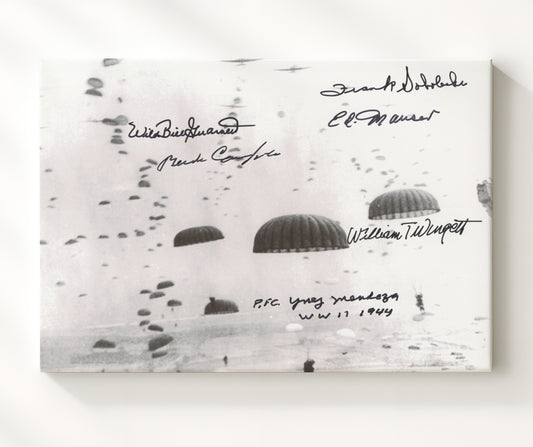 Frank Soboleski
E.R. Mauser
Wild Bill Guarnere
William T Wingett
P.F.C. Ynez Mendoza
WW 11 1944